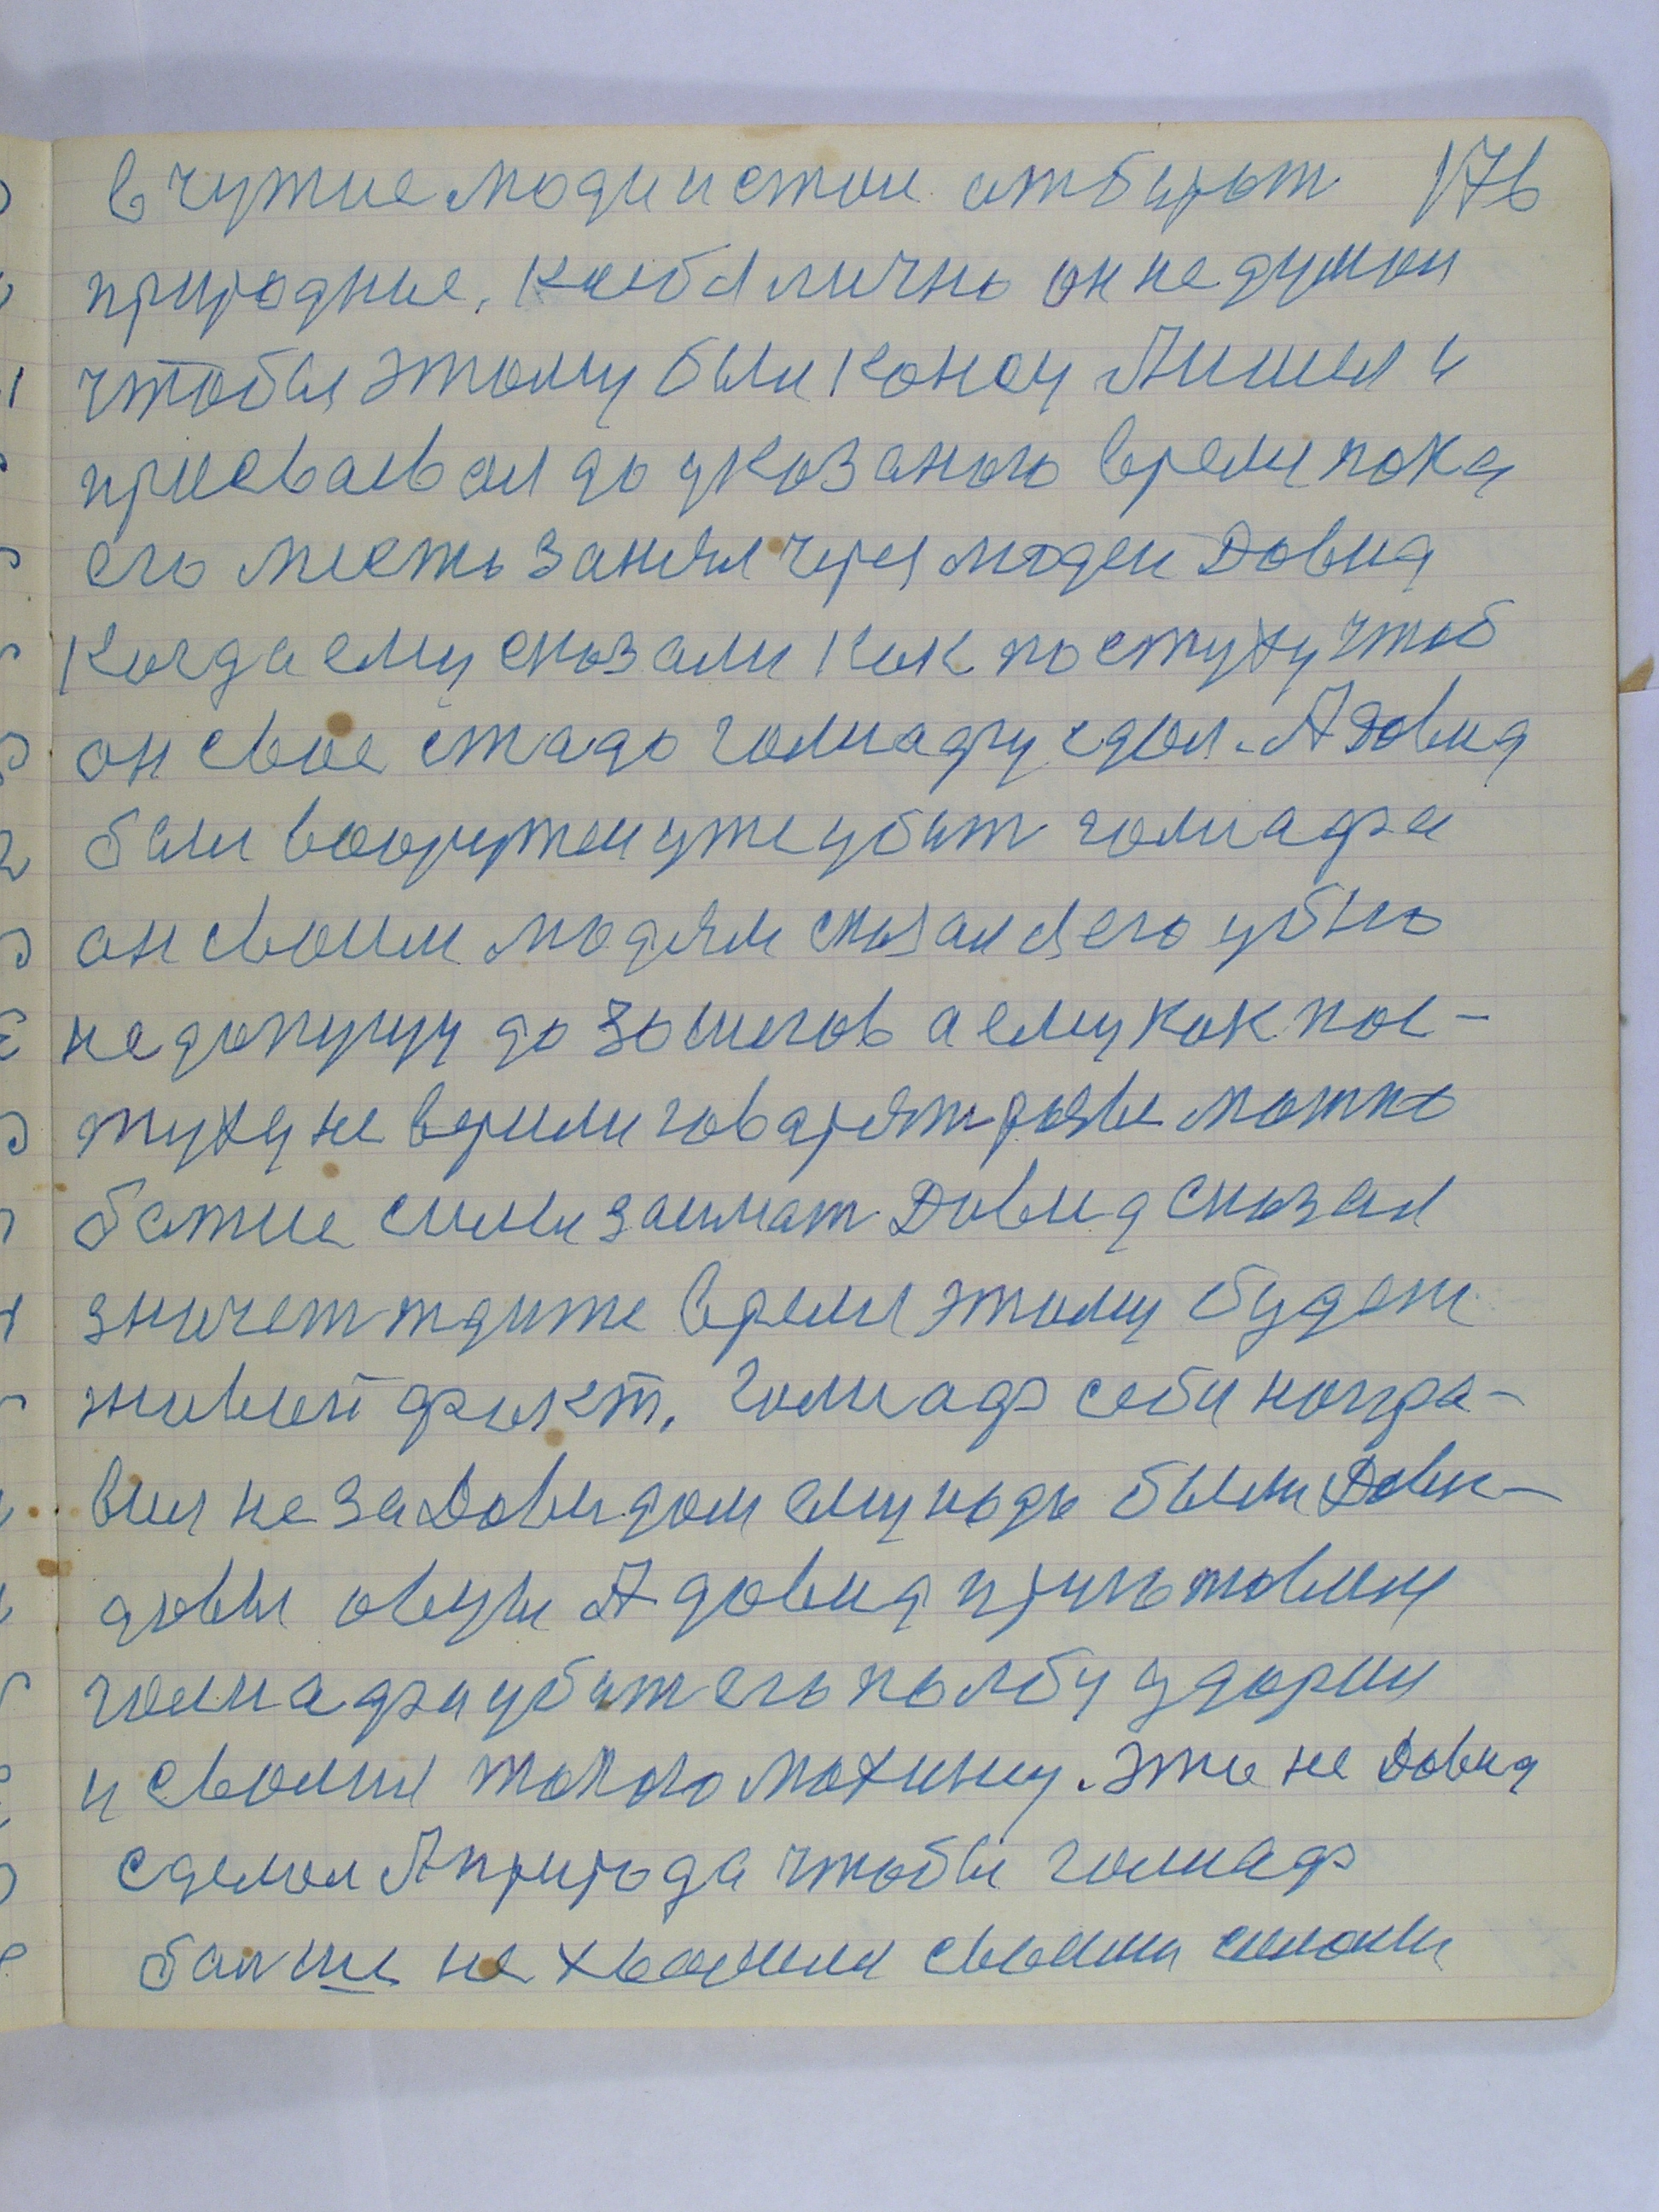 в чужие люди и стои отбирот 176
природные. каебы лично он не думои
чтобы этому были конец А ишел и
присваевал до указаного времи пока
его места занял через людеи Довид
когда ему сказали как постуху чтоб
он свое стадо голиафу сдал. А Довид
были вооружен уже убит голиафа
он своим людям сказал я его убю
не допущу до 30 шегов а ему как пос-
туху не верили говарят разве можно
божие силы заимат Довид сказал
значет ждите время этому будет
живыей факт. Голиаф себи напра-
вил не за Довидом ему надо были Дови-
довы овцы А довид приготовил
голиафа убит его по лбу ударил
и свалил такого махину. Это не Довид
сделал А природа чтобы голиаф
балше не хвалился своими силами